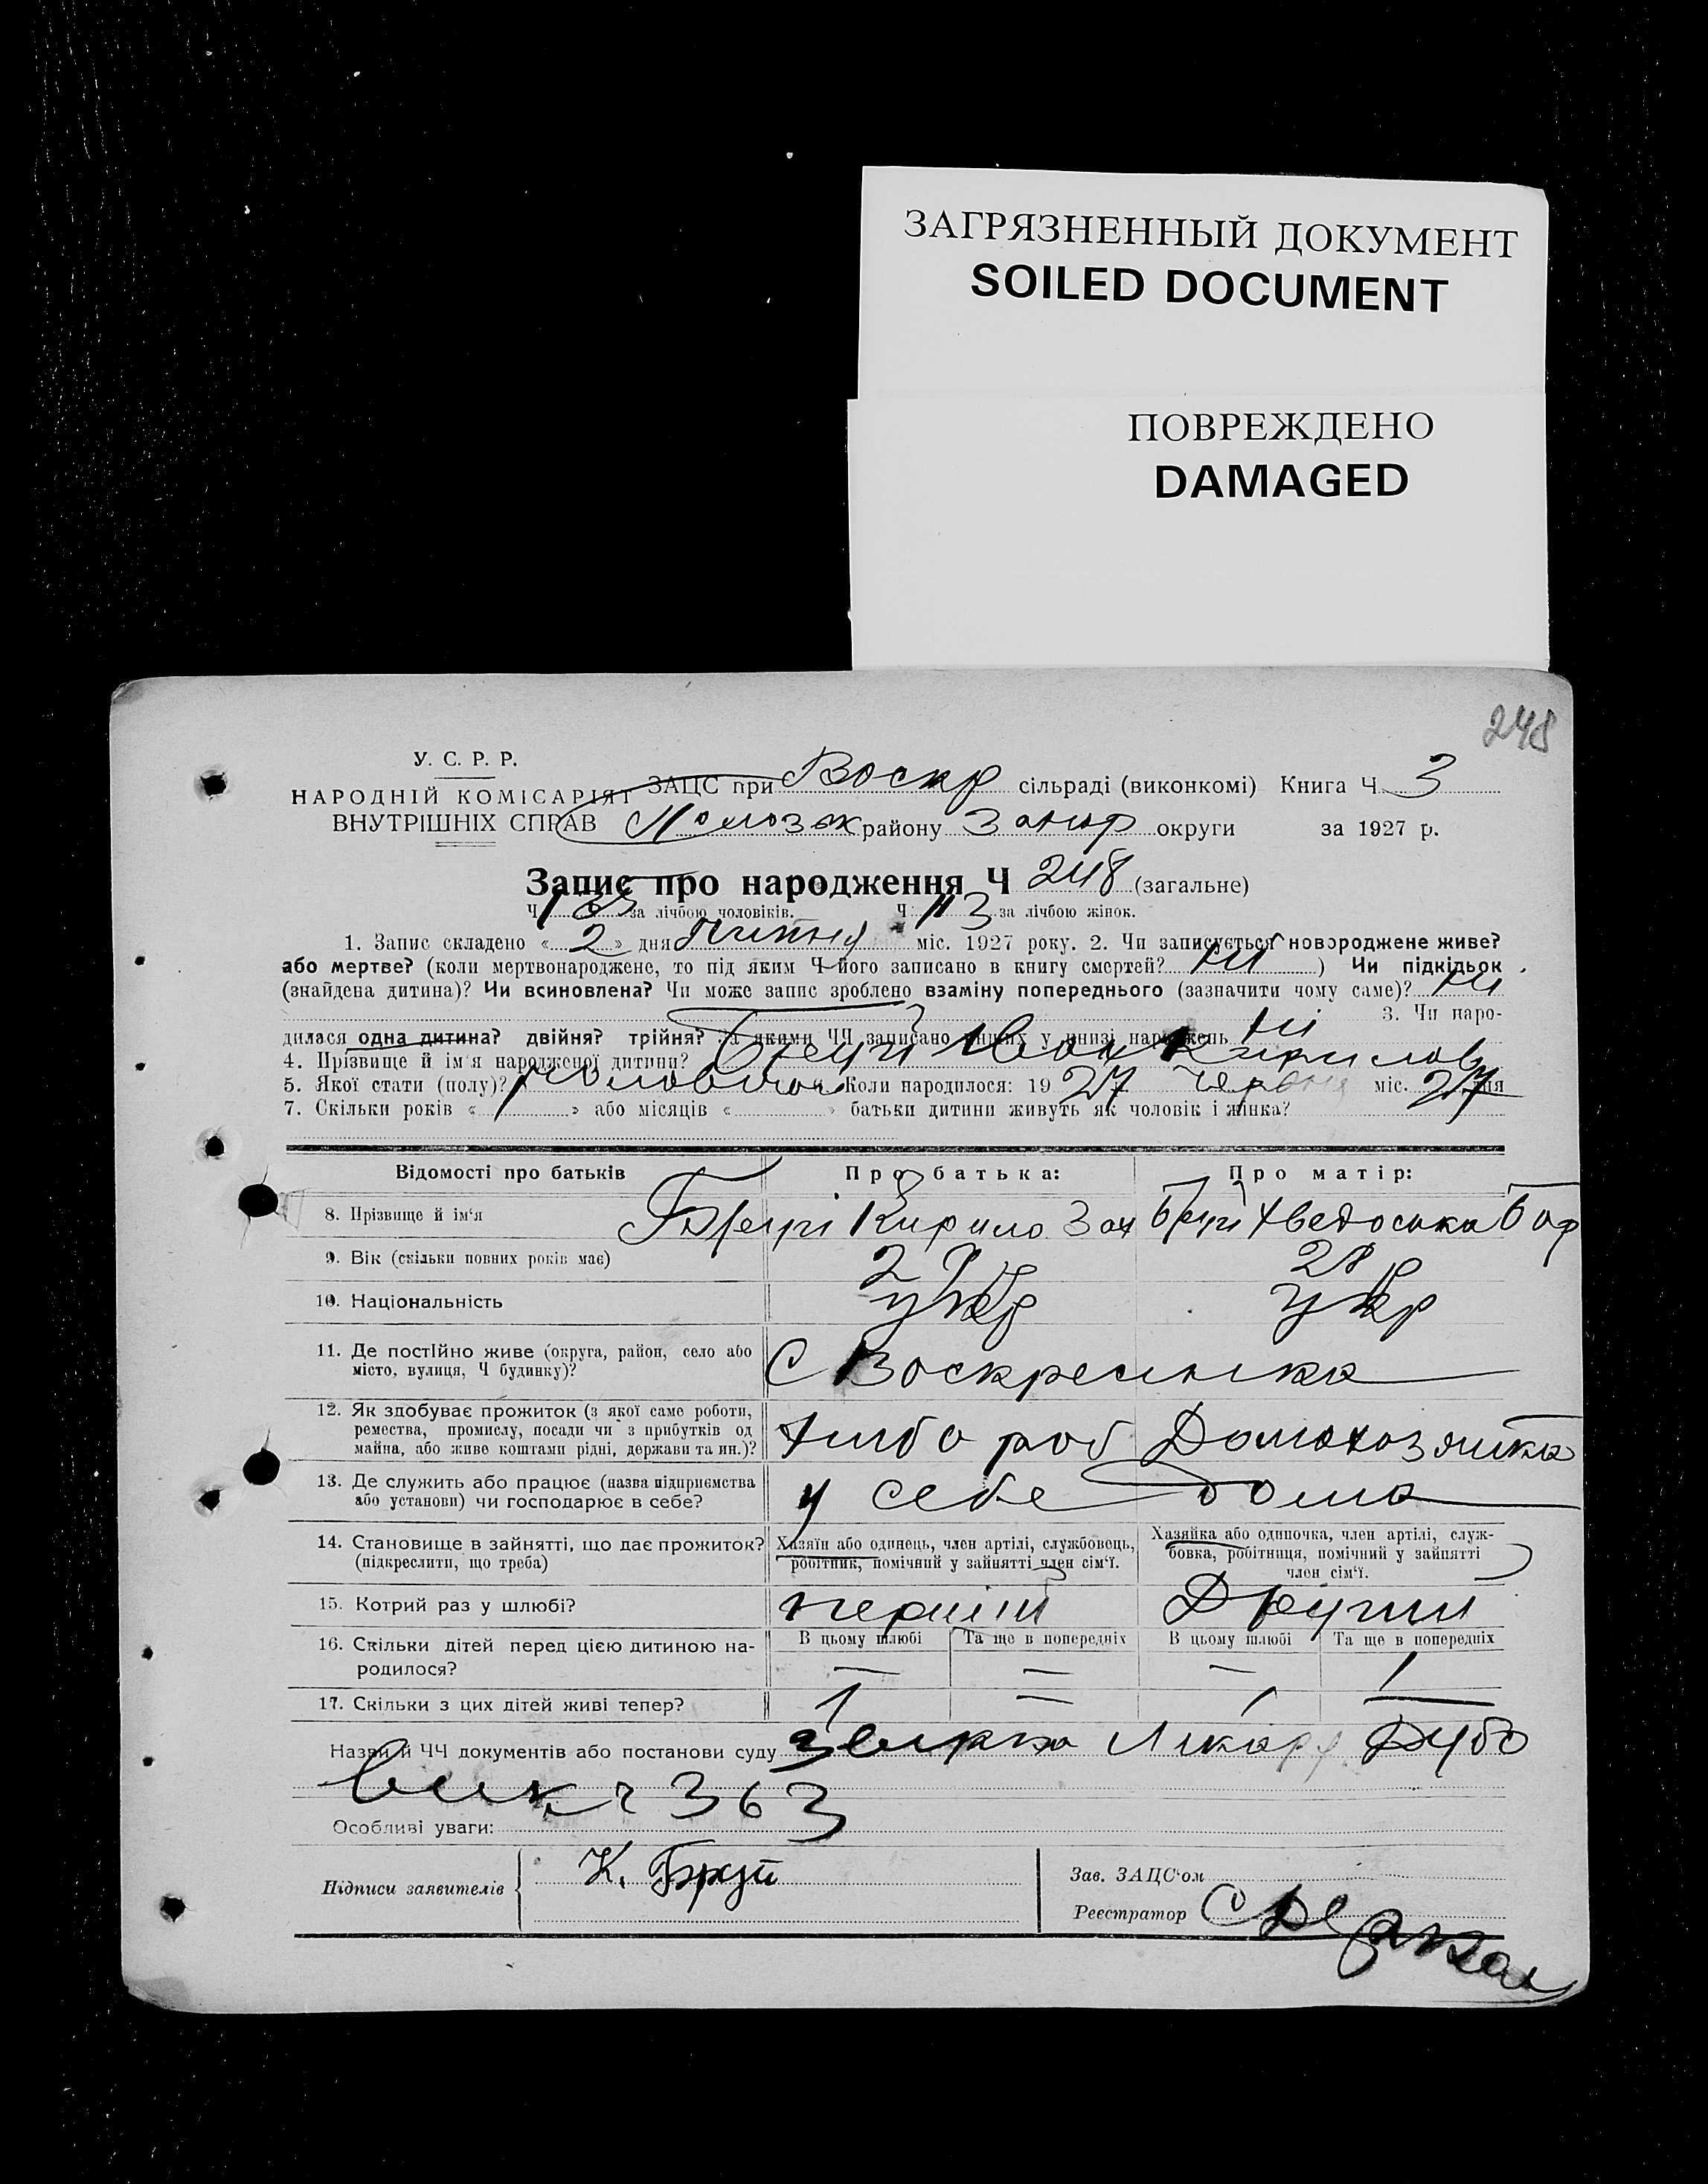 ЗАГРЯЗНЕННЫЙ ДОКУМЕНТ
SOILED DOCUMENT
ПОВРЕЖДЕНО
DAMAGED
248
У. С. Р. Р.
НАРОДНІЙ КОМІСАРІЯТ
ВНУТРІШНІХ СПРАВ
ЗАЦС при Воскр сільраді (виконкомі) Книга Ч. 3
району Запор округи за 1927 р.
Запис про народження Ч 248 (загальне)
Ч за лічбою чоловіків. Ч 113 за лічбою жінок.
1. Запис складено « 2 » дня Липня міс. 1927 року. 2. Чи записується новороджене живе?
або мертве? (коли мертвонароджене, то під яким Ч його записано в книгу смертей? ні ) Чи підкідьок
(знайдена дитина)? Чи всиновлена? Чи може запис зроблено взаміну попереднього (зазначити чому саме)? ні
3. Чи наро-
дилася одна дитина? двійня? трійня? За якими ЧЧ записано інших у книзі народжень ні
4. Прізвище й ім'я народженої дитини? Бруй Іван Кирилов
5. Якої стати (полу)? чоловічої Коли народилося: 19 27 червня міс. 27 дня
7. Скільки років « 1 » або місяців « » батьки дитини живуть як чоловік і жінка?
Відомості про батьків Про батька: Про матір:
8. Прізвище й ім'я Бруй Кирило Зах Бруй Хведоська
9. Вік (скільки повних років має) 28 р
10. Національність укр укр
11. Де постійно живе (округа, район, село або
місто, вулиця, Ч будинку)? С Воскресенка
12. Як здобуває прожиток (з якої саме роботи,
ремества, промислу, посади чи з прибутків од
майна, або живе коштами рідні, держави та ин.)? Хлібороб Домохозяйка
13. Де служить або працює (назва підприємства
або установи) чи господарює в себе? у себе дома
14. Становище в зайнятті, що дає прожиток?
(підкреслити, що треба)
Хазяїн або одинець, член артілі, службовець,
робітник, помічний у зайнятті член сім'ї.
Хазяйка або одиночка, член артілі, служ-
бовка, робітниця, помічний у зайнятті
член сім'ї.
15. Котрий раз у шлюбі? перший Другий
16. Скільки дітей перед цією дитиною на-
родилося?
В цьому шлюбі Та ще в попередніх В цьому шлюбі Та ще в попередніх
— — — 1
17. Скільки з цих дітей живі тепер? 1 — 1 —
Назви й ЧЧ документів або постанови суду
363
Особливі уваги:
Підписи заявителів К. Бруй
Зав. ЗАЦС'ом
Реєстратор